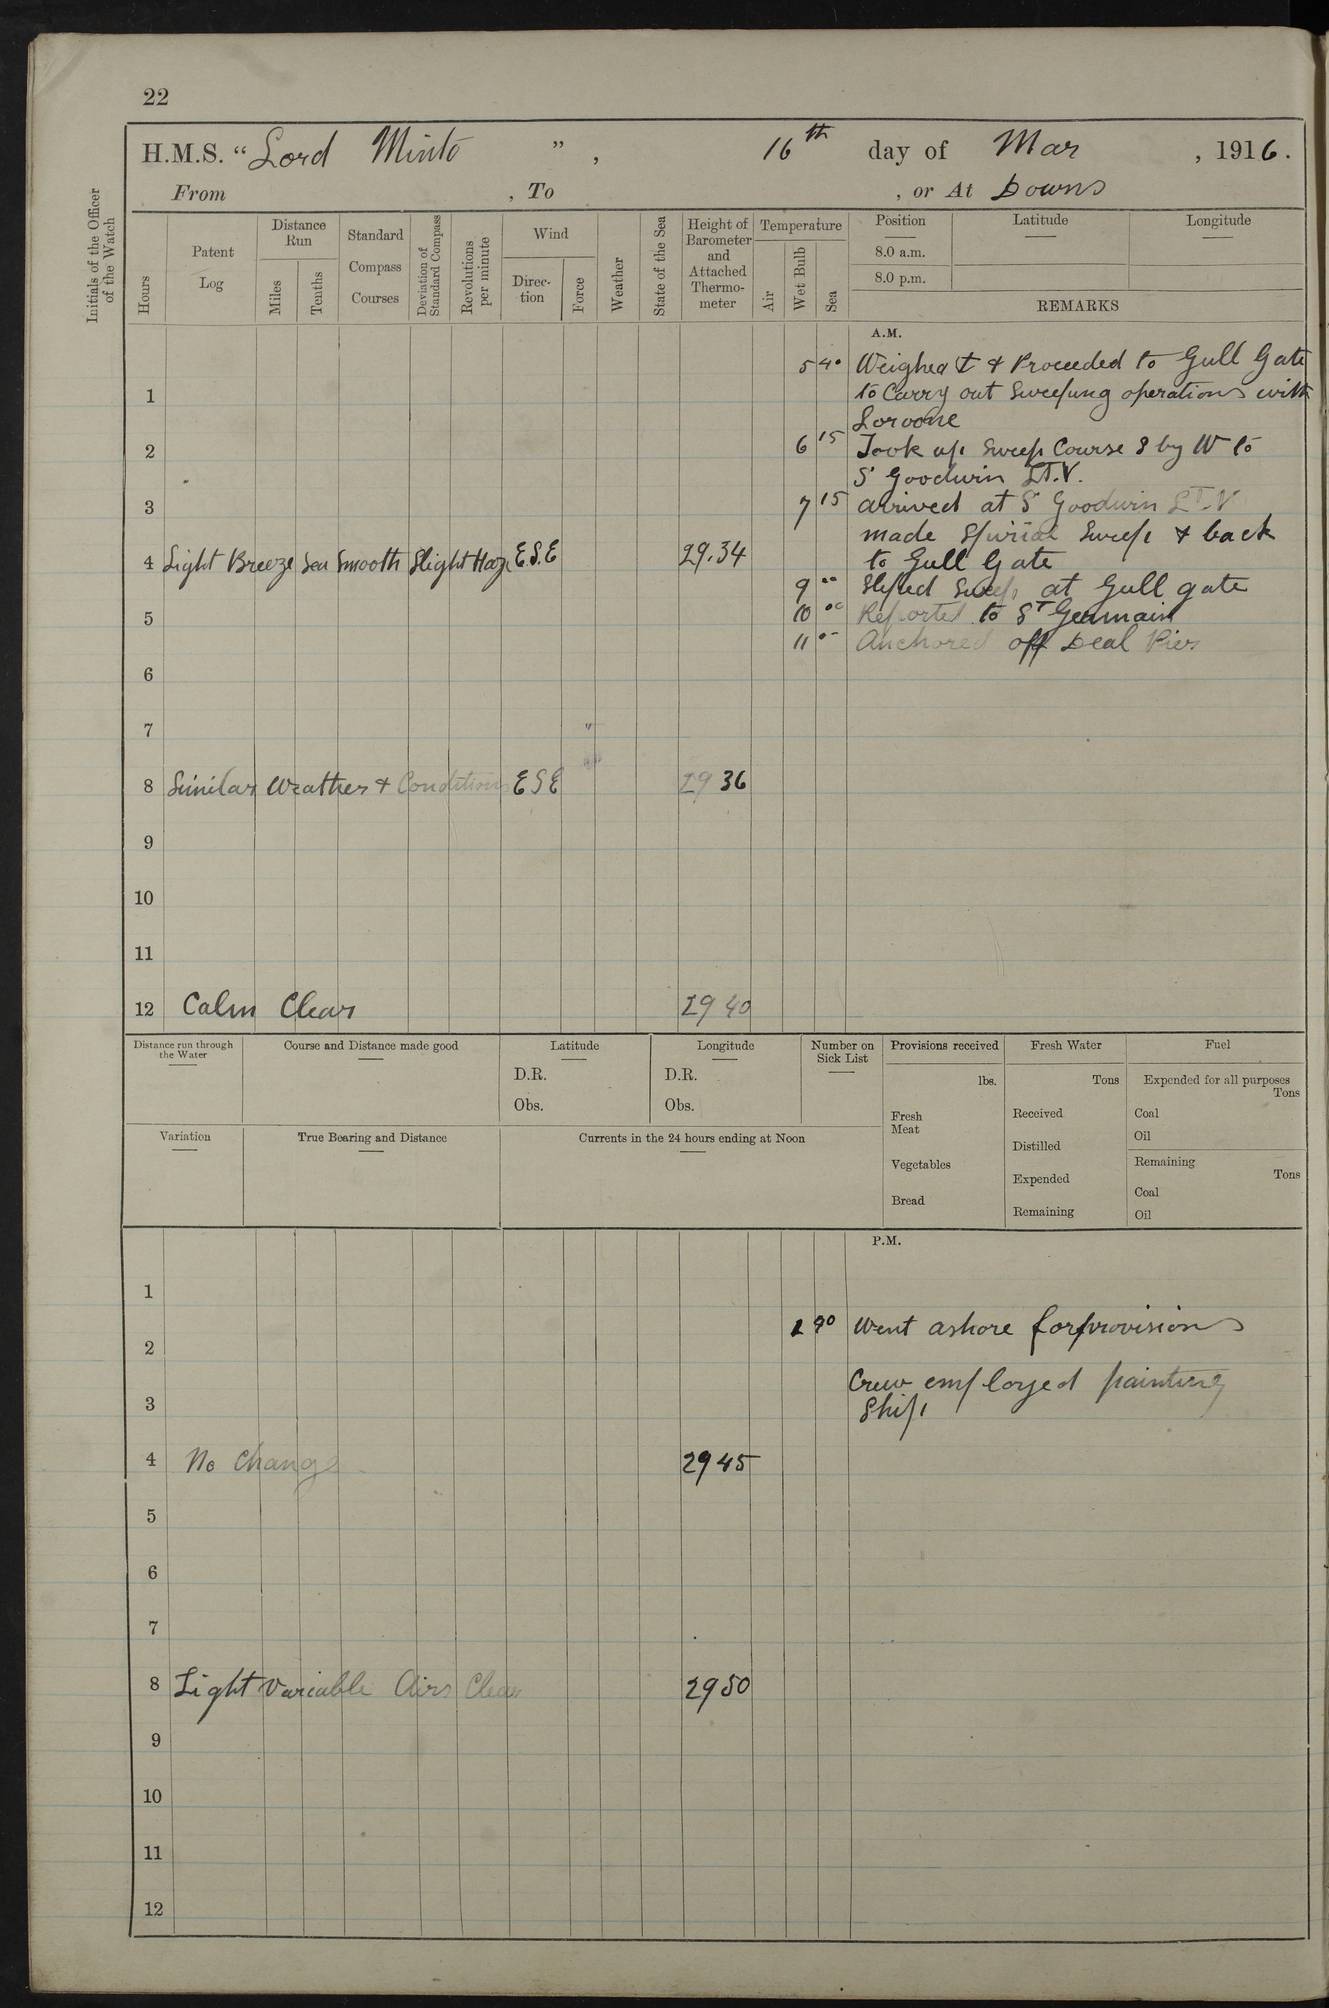 22
H.M.S. “Lord Minto ”, 16th day of Mar , 1916.
From , To , or At Downs
Initials of the Officer of the Watch
Hours
Patent Log
Distance Run
Miles
Tenths
Standard Compass Courses
Deviation of Standard Compass
Revolutions per minute
Wind
Direc-tion
Force
Weather
State of the Sea
Height of Barometer and Attached Thermo-meter
Temperature
Air
Wet Bulb
Sea
Position Latitude Longitude
8.0 a.m.
8.0 p.m.
REMARKS
A.M.
5 40 Weighed & Proceeded to Gull Gate
1 to Carry out Sweeping operations with
6 15 Took up Sweep Course S by W to
2
S Goodwin LT.V.
3 7 15 arrived at S Goodwin LT.V
made Sweep & back
4 Light Breeze Sea Smooth Slight Haze E.S.E 29.34 to Gull Gate
9 00 Sliped Sweep at Gull gate
5 10 00 Reported to ST Germain
11 0- Anchored off Deal Pier
6
7
8 Similar Weather & Conditions ESE 29 36
9
10
11
12 Calm Clear 29 40
Distance run through the Water
Course and Distance made good
Latitude
D.R.
Obs.
Longitude
D.R.
Obs.
Number on Sick List
Provisions received
lbs.
Fresh Meat
Vegetables
Bread
Fresh Water
Tons
Received
Distilled
Expended
Remaining
Fuel
Expended for all purposes
Tons
Coal
Oil
Remaining
Tons
Coal
Oil
Variation
True Bearing and Distance
Currents in the 24 hours ending at Noon
P.M.
1
Went ashore for provisions
2
Crew employed painting
3 Ship
4 No Change 29 45
5
6
7
8 Light Variable Airs Clear 29 50
9
10
11
12